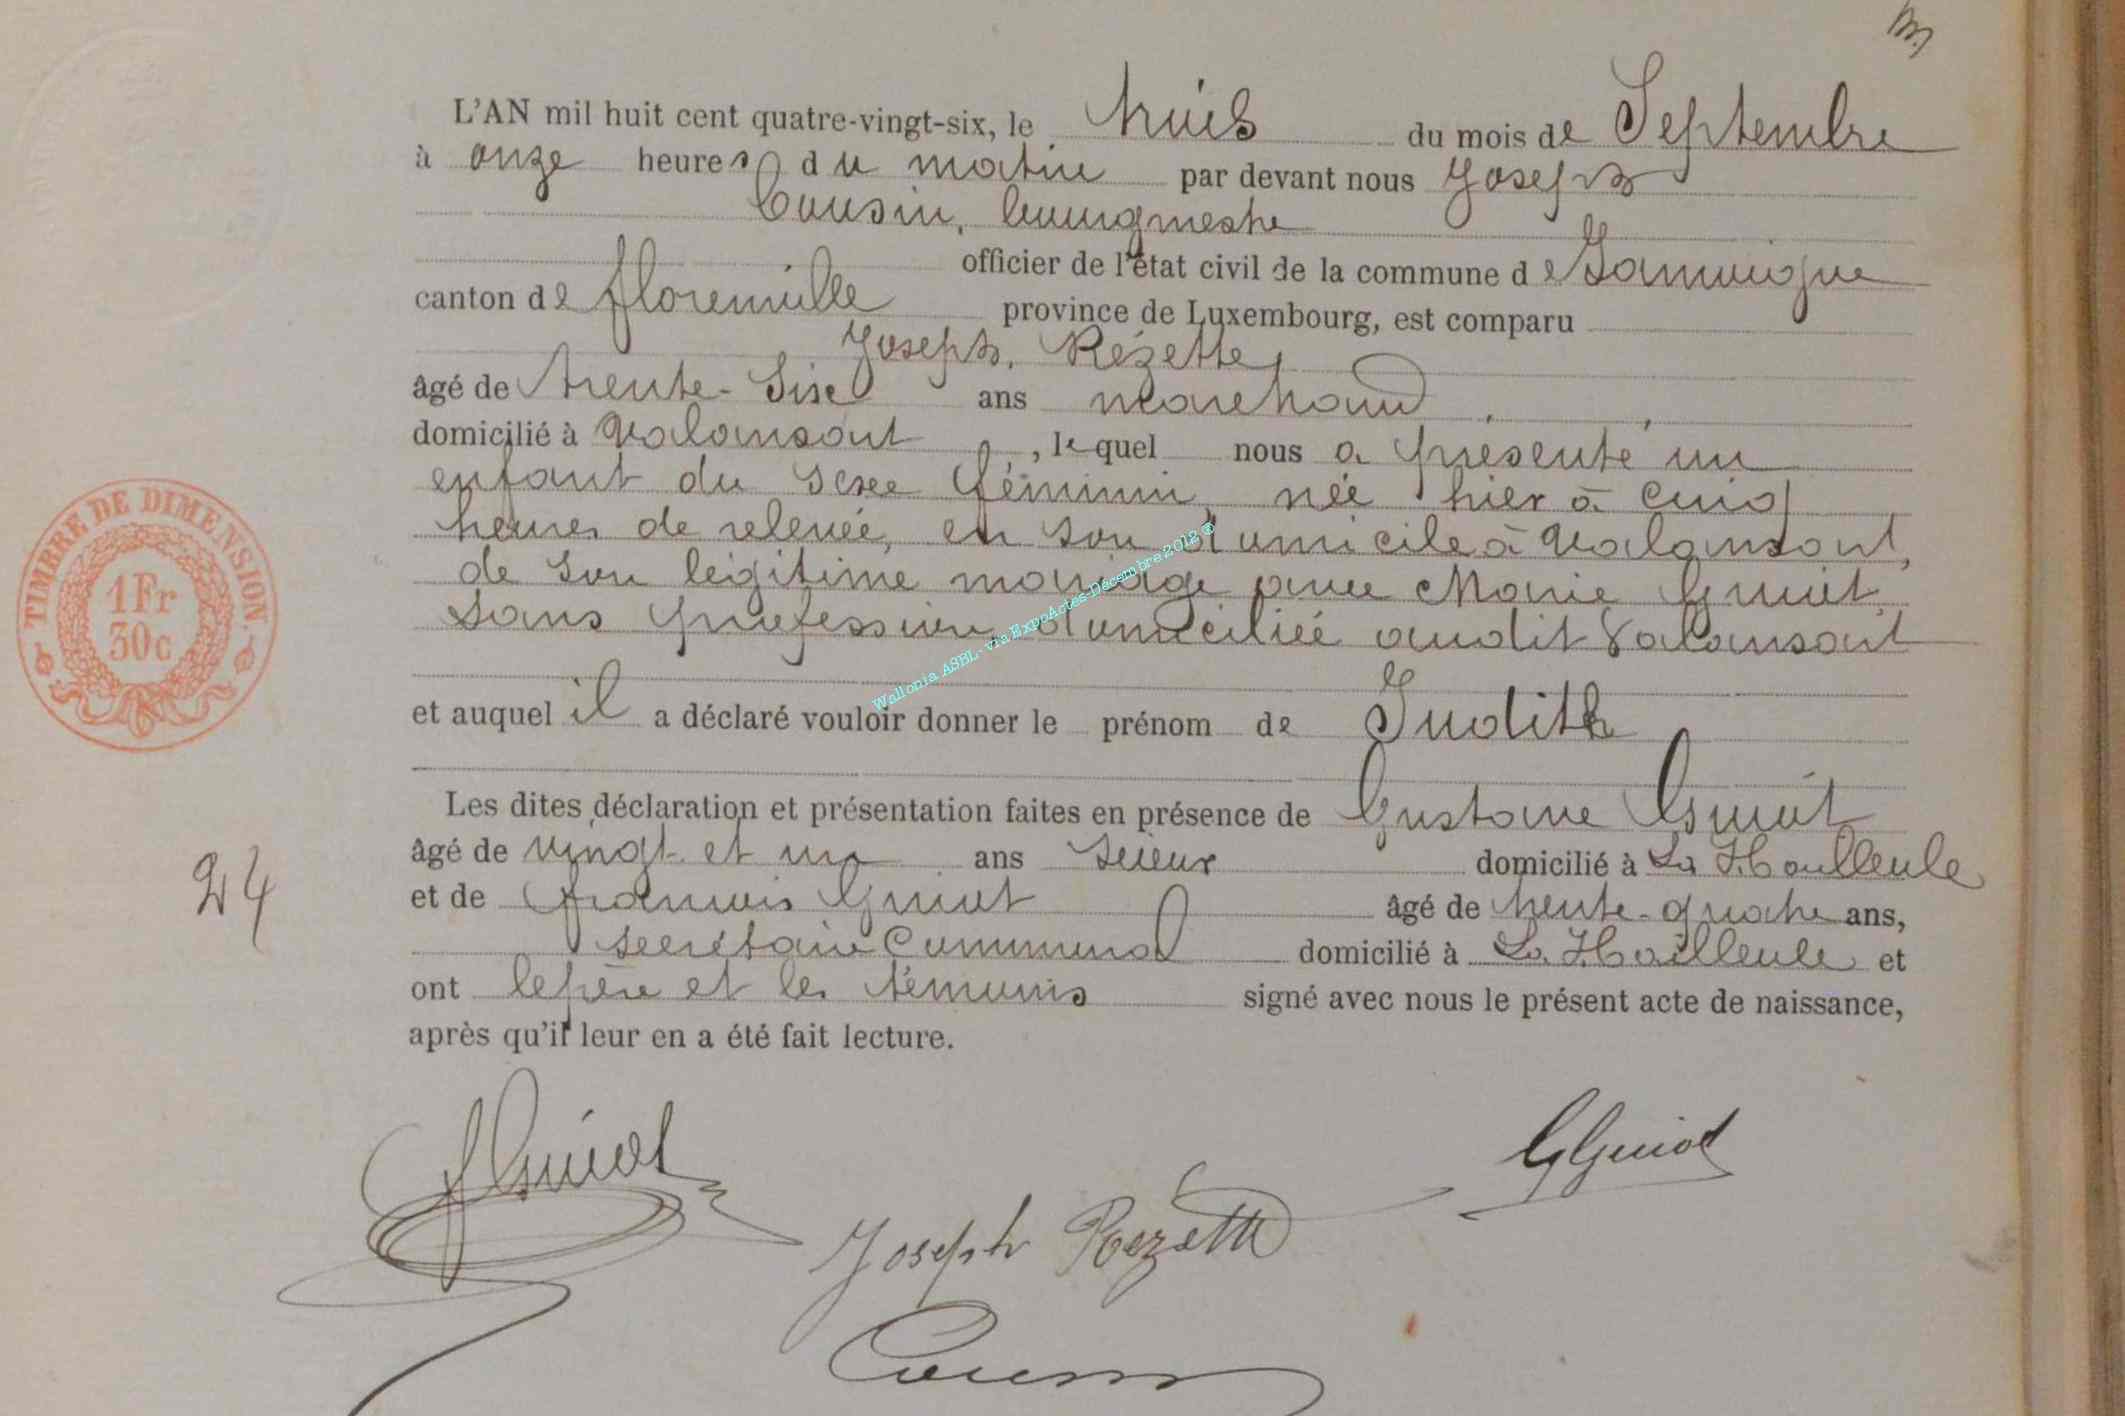 L'AN mil huit cent quatre-vingt-six, le trois du mois de Septembre
à onze heures du matin par devant nous Joseph
Cousin, bourgmestre
officier de l'état civil de la commune de Jamoigne
canton de florenville province de Luxembourg, est comparu
Joseph Rézette
âgé de trente-six ans marchand
domicilié à Valansart, lequel nous a présenté un
enfant du sexe féminin, née hier à cinq
heures de relevée, en son domicile à Valansart,
de son légitime mariage avec Marie Guiot,
sans profession, domiciliée audit Valansart
et auquel il a déclaré vouloir donner le prénom de Judith
Les dites déclaration et présentation faites en présence de Gustave Guiot
âgé de vingt et un ans scieur domicilié à La Hailleule
et de françois Guiot âgé de trente-quatre ans,
secrétaire Communal domicilié à La Hailleule et
ont le père et les témoins signé avec nous le présent acte de naissance,
après qu'il leur en a été fait lecture.
TIMBRE DE DIMENSION.
1Fr
30c
24
Wallonia ASBL - via ExpoActes-Décembre 2012 ©
fGuiot
GGuiot
Joseph Rezette
Cousin